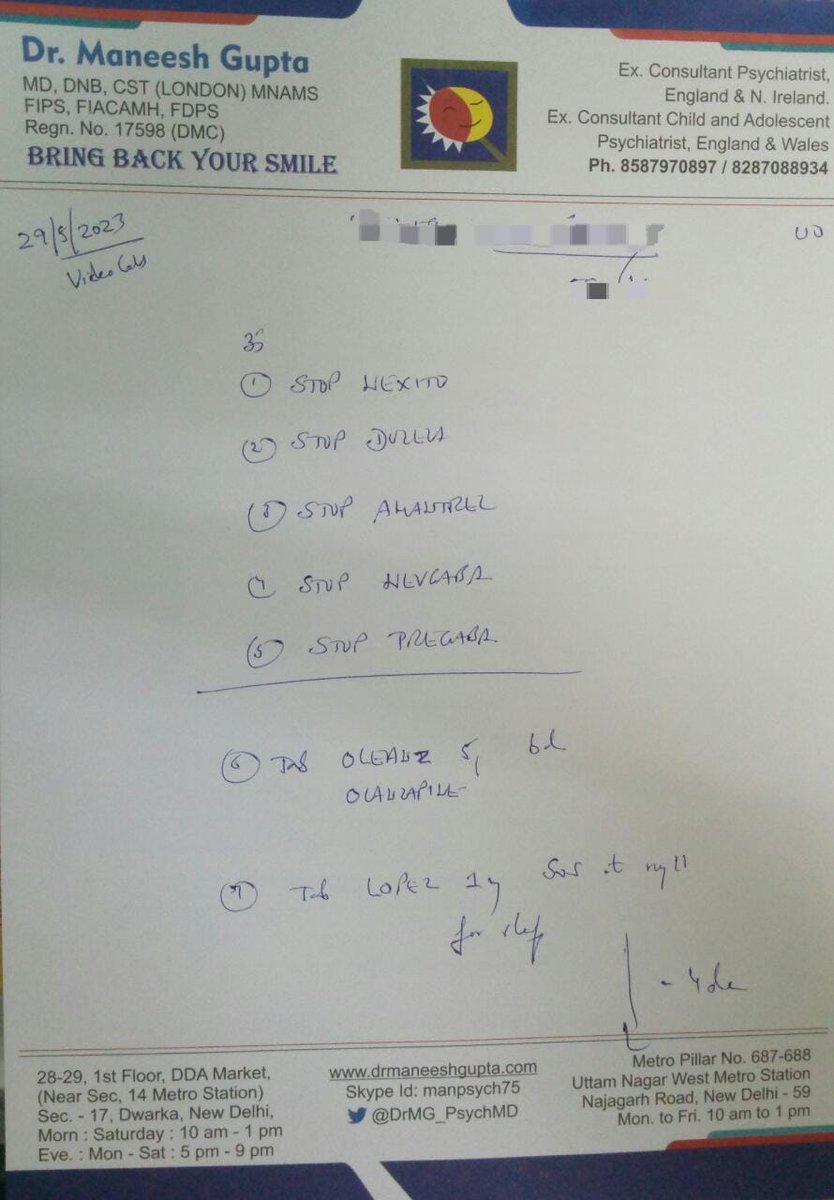 Dr. Maneesh Gupta
MD, DNB, CST (LONDON) MNAMS
FIPS, FIACAMH, FDPS
Regn. No. 17598 (DMC)
BRING BACK YOUR SMILE
Ex. Consultant Psychiatrist,
England & N. Ireland.
Ex. Consultant Child and Adolescent
Psychiatrist, England & Wales
Ph. 8587970897 / 8287088934
29/5/2023
Video
ॐ
① STOP NEXITO
② STOP DUZELA
③ STOP AMANTREL
④ STOP NEVGABA
⑤ STOP PREGABA
⑥ Tab OLEANZ 5, bd
OLANZAPINE
⑦ Tab LOPEZ 1 SOS at night
for sleep
28-29, 1st Floor, DDA Market,
(Near Sec, 14 Metro Station)
Sec. - 17, Dwarka, New Delhi,
Morn : Saturday : 10 am - 1 pm
Eve. : Mon - Sat : 5 pm - 9 pm
www.drmaneeshgupta.com
Skype Id: manpsych75
@DrMG_PsychMD
Metro Pillar No. 687-688
Uttam Nagar West Metro Station
Najagarh Road, New Delhi - 59
Mon. to Fri. 10 am to 1 pm